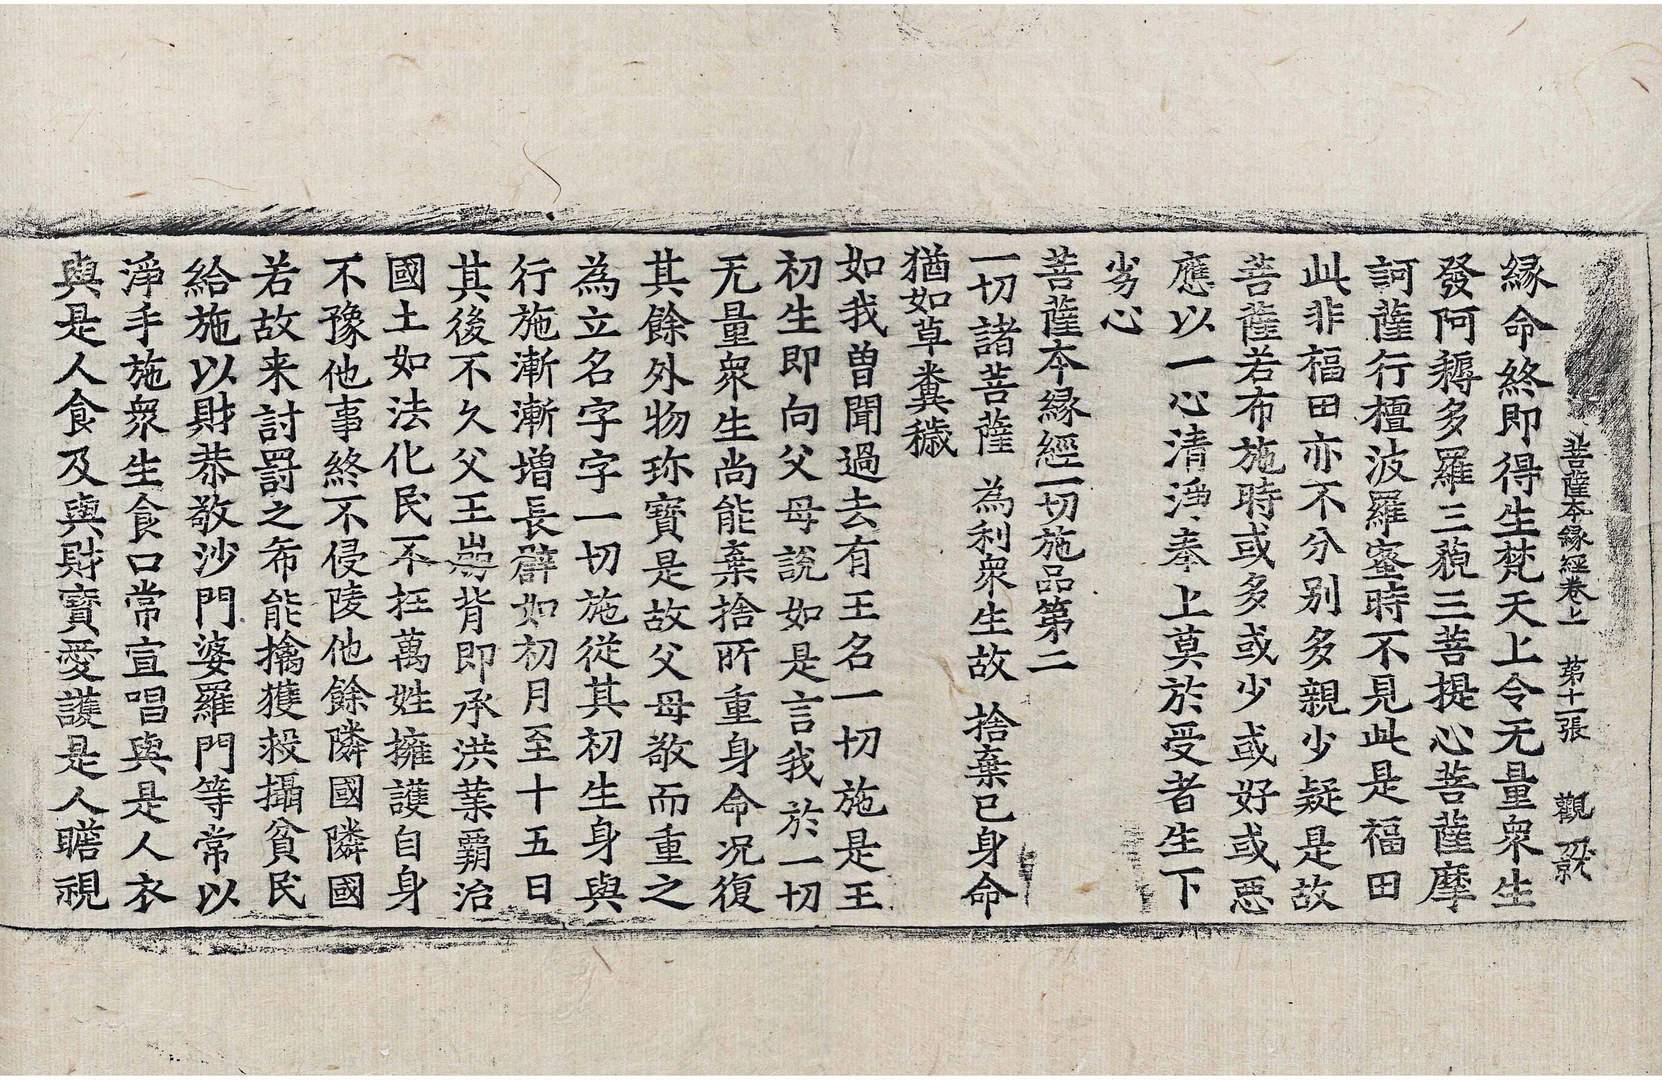 菩薩本縁經卷上　第十一張　觀
縁命終即得生梵天上令无量衆生
發阿耨多羅三藐三菩提心菩薩摩
訶薩行檀波羅蜜時不見此是福田
此非福田亦不分別多親少疑是故
菩薩若布施時或多或少或好或惡
應以一心清淨奉上莫於受者生下
劣心
菩薩本縁經一切施品第二
一切諸菩薩　為利衆生故　捨棄已身命
猶如草糞穢
如我曽聞過去有王名一切施是王
初生即向父母說如是言我於一切
无量衆生尚能棄捨所重身命况復
其餘外物珎寶是故父母敬而重之
為立名字字一切施從其初生身與
行施漸漸増長譬如初月至十五日
其後不久父王崩背即承洪業霸治
國土如法化民不抂萬姓擁護自身
不豫他事終不侵陵他餘隣國隣國
若故来討罰之希能擒獲救攝貧民
給施以財恭敬沙門婆羅門等常以
淨手施衆生食口常宣唱與是人衣
與是人食及與財寶愛護是人瞻視